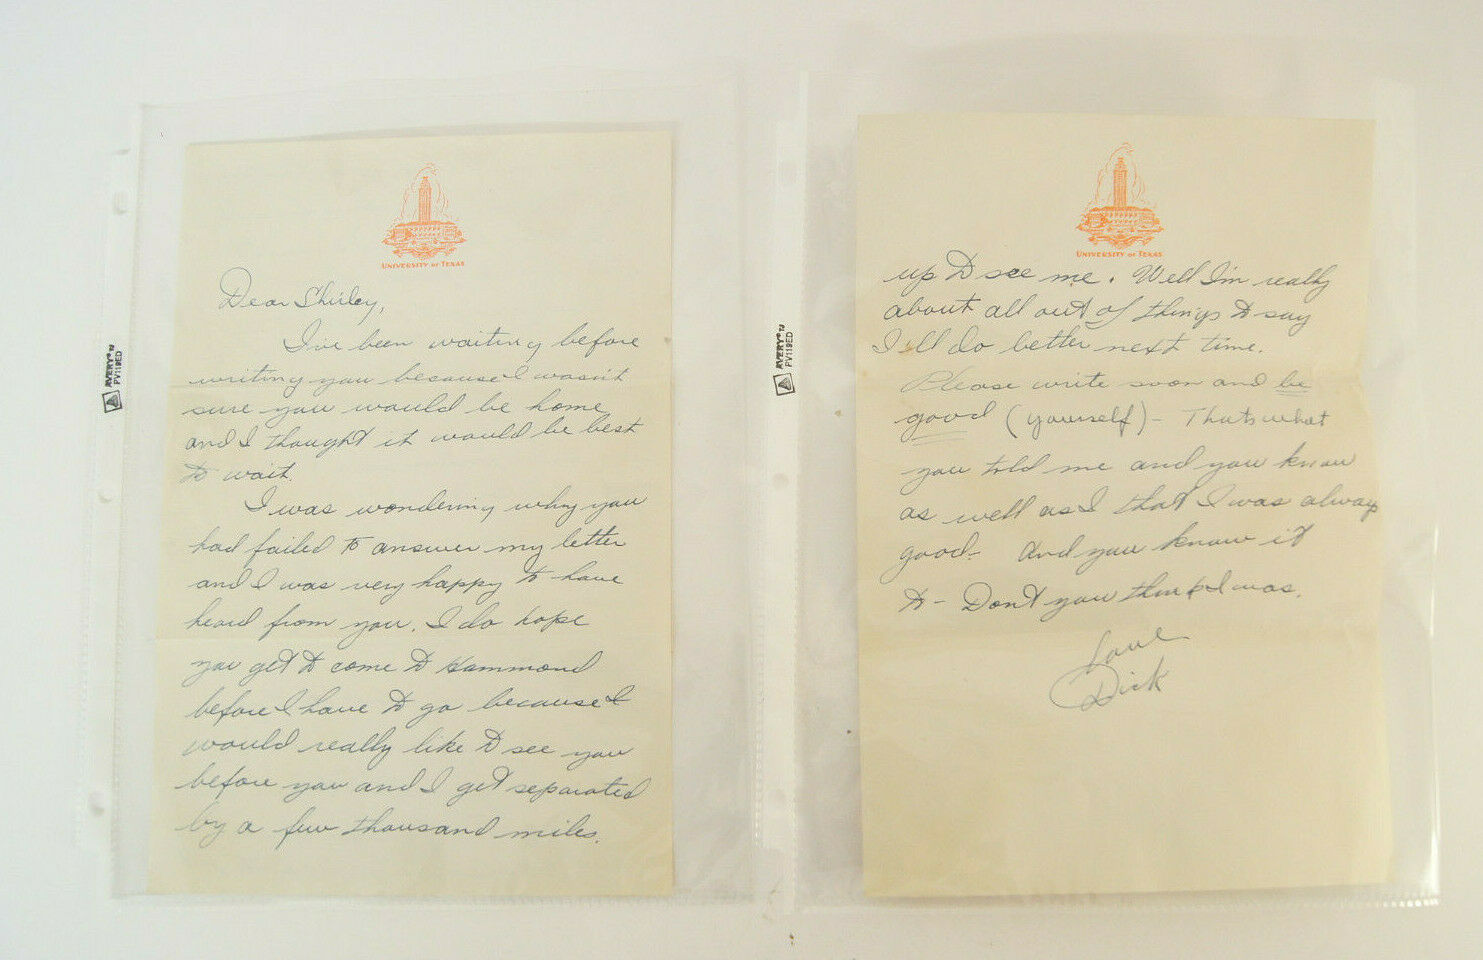 UNIVERSITY OF TEXAS
Dear Shirley,
I've been waiting before
writing you because I wasn't
sure you would be home
and I thought it would be best
to wait.
I was wondering why you
had failed to answer my letter
and I was very happy to have
heard from you. I do hope
you get to come to Hammond
before I have to go because I
would really like to see you
before you and I get separated
by a few thousand miles.
AVERY®
PV119ED
UNIVERSITY OF TEXAS
up to see me. Well I'm really
about all out of things to say
I'll do better next time.
Please write soon and be
good (yourself) - Thats what
you told me and you know
as well as I that I was always
good - And you know it
to - Don't you think I was.
Love
Dick
AVERY®
PV119ED